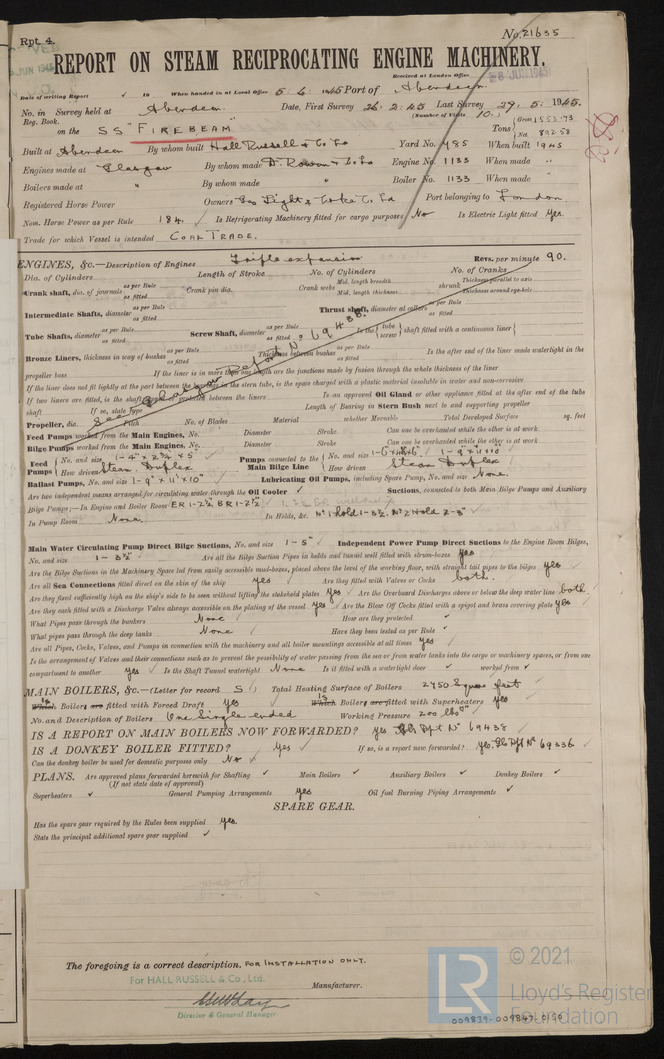 Rpt. 4.
No. 21635
REPORT ON STEAM RECIPROCATING ENGINE MACHINERY.
Received at London Office
28 JUN 1945
Date of writing Report 19 When handed in at Local Office 5. 6. 1945 Port of Aberdeen
No. in Survey held at Aberdeen Date, First Survey 26. 2. 45 Last Survey 29. 5. 1945.
Reg. Book. (Number of Visits 10.)
on the SS "FIREBEAM" Tons { Gross 1553.73 Net 892.58
Built at Aberdeen By whom built Hall Russell & Co. Ld Yard No. 785 When built 1945
Engines made at Glasgow By whom made D. Rowan & Co. Ld Engine No. 1133 When made "
Boilers made at " By whom made " Boiler No. 1133 When made "
Registered Horse Power Owners Gas Light & Coke Co. Ld Port belonging to London
Nom. Horse Power as per Rule 184 Is Refrigerating Machinery fitted for cargo purposes No Is Electric Light fitted Yes.
Trade for which Vessel is intended COAL TRADE.
ENGINES, &c.—Description of Engines Triple expansion Revs. per minute 90.
Dia. of Cylinders Length of Stroke No. of Cylinders No. of Cranks
Crank shaft, dia. of journals as per Rule as fitted Crank pin dia. Crank webs Mid. length breadth Mid. length thickness shrunk Thickness parallel to axis Thickness around eye-hole
Intermediate Shafts, diameter as per Rule as fitted Thrust shaft, diameter at collars as per Rule as fitted
Tube Shafts, diameter as per Rule as fitted Screw Shaft, diameter as per Rule as fitted Is the { tube screw } shaft fitted with a continuous liner {
See Glasgow Report No 69438.
Bronze Liners, thickness in way of bushes as per Rule as fitted Thickness between bushes as per Rule as fitted Is the after end of the liner made watertight in the
propeller boss If the liner is in more than one length are the junctions made by fusion through the whole thickness of the liner
If the liner does not fit tightly at the part between the bushes in the stern tube, is the space charged with a plastic material insoluble in water and non-corrosive
If two liners are fitted, is the shaft lapped or protected between the liners Is an approved Oil Gland or other appliance fitted at the after end of the tube
shaft If so, state type Length of Bearing in Stern Bush next to and supporting propeller
Propeller, dia. Pitch No. of Blades Material whether Moveable Total Developed Surface sq. feet
Feed Pumps worked from the Main Engines, No. Diameter Stroke Can one be overhauled while the other is at work
Bilge Pumps worked from the Main Engines, No. Diameter Stroke Can one be overhauled while the other is at work
Feed Pumps { No. and size How driven Steam Duplex Pumps connected to the Main Bilge Line { No. and size How driven Steam Duplex
Ballast Pumps, No. and size 1-9" x 11" x 10" Lubricating Oil Pumps, including Spare Pump, No. and size None.
Are two independent means arranged for circulating water through the Oil Cooler ✓ Suctions, connected to both Main Bilge Pumps and Auxiliary
Bilge Pumps;—In Engine and Boiler Room ER 1-2½" BR 1-2½"
In Pump Room None. In Holds, &c. No 1 hold 1-3½. No 2 Hold 2-3"
Main Water Circulating Pump Direct Bilge Suctions, No. and size 1-5" ✓ Independent Power Pump Direct Suctions to the Engine Room Bilges,
No. and size 1-3½" ✓ Are all the Bilge Suction Pipes in holds and tunnel well fitted with strum-boxes yes
Are the Bilge Suctions in the Machinery Space led from easily accessible mud-boxes, placed above the level of the working floor, with straight tail pipes to the bilges yes
Are all Sea Connections fitted direct on the skin of the ship yes ✓ Are they fitted with Valves or Cocks both.
Are they fixed sufficiently high on the ship's side to be seen without lifting the stokehold plates yes ✓ Are the Overboard Discharges above or below the deep water line both.
Are they each fitted with a Discharge Valve always accessible on the plating of the vessel yes ✓ Are the Blow Off Cocks fitted with a spigot and brass covering plate yes
What Pipes pass through the bunkers None ✓ How are they protected ✓
What pipes pass through the deep tanks None ✓ Have they been tested as per Rule ✓
Are all Pipes, Cocks, Valves, and Pumps in connection with the machinery and all boiler mountings accessible at all times yes
Is the arrangement of Valves and their connections such as to prevent the possibility of water passing from the sea or from water tanks into the cargo or machinery spaces, or from one
compartment to another yes ✓ Is the Shaft Tunnel watertight None ✓ Is it fitted with a watertight door ✓ worked from ✓
MAIN BOILERS, &c.—(Letter for record S) Total Heating Surface of Boilers 2750 Square feet
Is Which Boilers are fitted with Forced Draft Yes ✓ Is Which Boilers are fitted with Superheaters yes
No. and Description of Boilers One Single ended Working Pressure 200 lbs
IS A REPORT ON MAIN BOILERS NOW FORWARDED? yes. Gls Rpt No 69438
IS A DONKEY BOILER FITTED? Yes ✓ If so, is a report now forwarded? yes. Gls Rpt No 69336
Can the donkey boiler be used for domestic purposes only No ✓
PLANS. Are approved plans forwarded herewith for Shafting ✓ Main Boilers ✓ Auxiliary Boilers ✓ Donkey Boilers ✓
(If not state date of approval)
Superheaters ✓ General Pumping Arrangements yes Oil fuel Burning Piping Arrangements ✓
SPARE GEAR.
Has the spare gear required by the Rules been supplied yes.
State the principal additional spare gear supplied ✓
The foregoing is a correct description, FOR INSTALLATION ONLY.
For HALL RUSSELL & Co., Ltd.
Manufacturer.
Director & General Manager
LR © 2021
Lloyd's Register
Foundation
009839-009847-0150